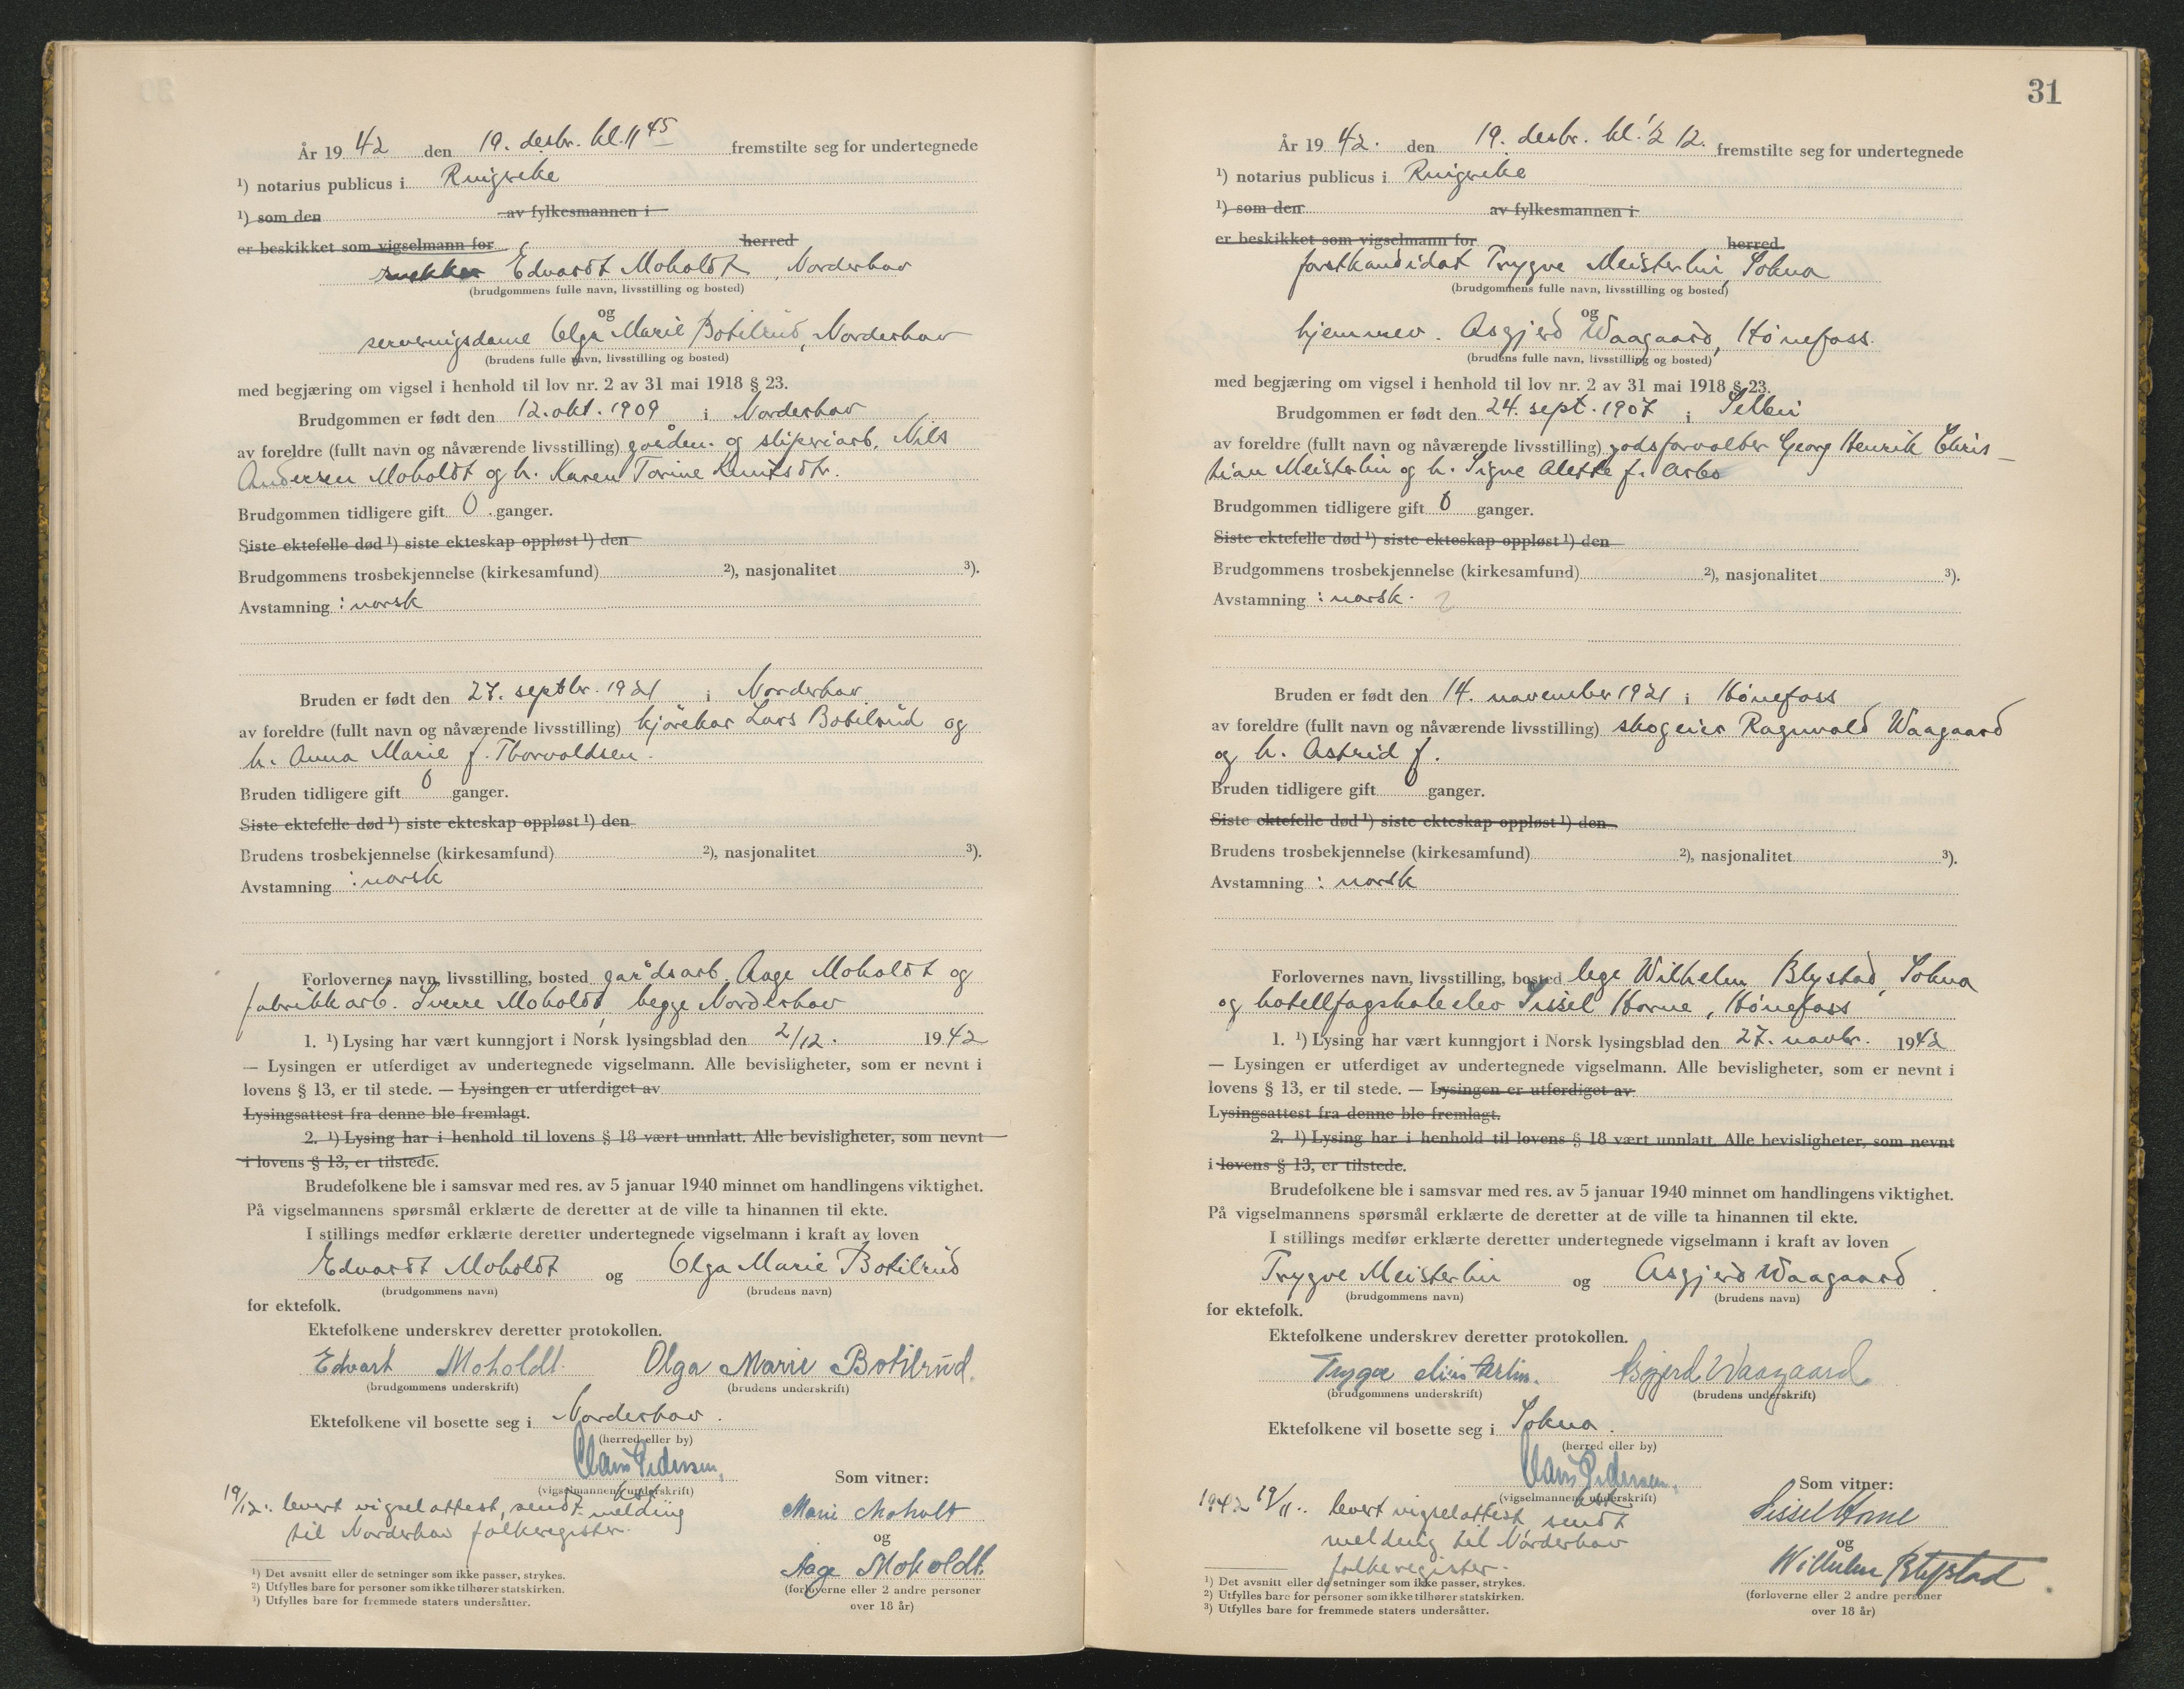 År 19 42 den 19. desbr. kl. 11 45 fremstilte seg for undertegnede
¹) notarius publicus i Ringerike
¹) som den av fylkesmannen i
er beskikket som vigselmann for herred
snekker Edvardt Moholdt, Norderhov
(brudgommens fulle navn, livsstilling og bosted)
og
serveringsdame Olga Marie Botilrud, Norderhov
(brudens fulle navn, livsstilling og bosted)
med begjæring om vigsel i henhold til lov nr. 2 av 31 mai 1918 § 23.
Brudgommen er født den 12. okt. 1909 i Norderhov
av foreldre (fullt navn og nåværende livsstilling) gårdm. og sliperiarb. Nils
Andersen Moholdt og h. Karen Torine Knutsdtr.
Brudgommen tidligere gift 0 ganger.
Siste ektefelle død ¹) siste ekteskap oppløst ¹) den
Brudgommens trosbekjennelse (kirkesamfund) ²), nasjonalitet ³).
Avstamning : norsk
Bruden er født den 27. septbr. 1921 i Norderhov
av foreldre (fullt navn og nåværende livsstilling) kjørekar Lars Botilrud og
h. Anna Marie f. Thorvaldsen.
Bruden tidligere gift 0 ganger.
Siste ektefelle død ¹) siste ekteskap oppløst ¹) den
Brudens trosbekjennelse (kirkesamfund) ²), nasjonalitet ³).
Avstamning : norsk
Forlovernes navn, livsstilling, bosted gårdsarb. Aage Moholdt og
fabrikkarb. Sverre Moholdt, begge Norderhov
1. ¹) Lysing har vært kunngjort i Norsk lysingsblad den 2/12. 1942
— Lysingen er utferdiget av undertegnede vigselmann. Alle bevisligheter, som er nevnt i
lovens § 13, er til stede. — Lysingen er utferdiget av
Lysingsattest fra denne ble fremlagt.
2. ¹) Lysing har i henhold til lovens § 18 vært unnlatt. Alle bevisligheter, som nevnt
i lovens § 13, er tilstede.
Brudefolkene ble i samsvar med res. av 5 januar 1940 minnet om handlingens viktighet.
På vigselmannens spørsmål erklærte de deretter at de ville ta hinannen til ekte.
I stillings medfør erklærte deretter undertegnede vigselmann i kraft av loven
Edvardt Moholdt og Olga Marie Botilrud
(brudgommens navn) (brudens navn)
for ektefolk.
Ektefolkene underskrev deretter protokollen.
Edvart Moholdt. Olga Marie Botilrud.
(brudgommens underskrift) (brudens underskrift)
Ektefolkene vil bosette seg i Norderhov.
(herred eller by)
Claus Pedersen.
(vigselmannens underskrift)
Som vitner:
19/12. levert vigselattest, sendt melding
til Norderhov folkeregister.
Marie Moholt
og
Aage Moholdt.
(forloverne eller 2 andre personer
over 18 år)
¹) Det avsnitt eller de setninger som ikke passer, strykes.
²) Utfylles bare for personer som ikke tilhører statskirken.
³) Utfylles bare for fremmede staters undersåtter.
31
År 19 42. den 19. desbr. kl. ½ 12. fremstilte seg for undertegnede
¹) notarius publicus i Ringerike
¹) som den av fylkesmannen i
er beskikket som vigselmann for herred
forstkandidat Trygve Meisterlin, Sokna
(brudgommens fulle navn, livsstilling og bosted)
og
hjemmev. Asgjerd Waagaard, Hønefoss.
(brudens fulle navn, livsstilling og bosted)
med begjæring om vigsel i henhold til lov nr. 2 av 31 mai 1918 § 23.
Brudgommen er født den 24. sept. 1907 i Selbu
av foreldre (fullt navn og nåværende livsstilling) godsforvalter Georg Henrik Chris-
tian Meisterlin og h. Signe Alette f. Arbo
Brudgommen tidligere gift 0 ganger.
Siste ektefelle død ¹) siste ekteskap oppløst ¹) den
Brudgommens trosbekjennelse (kirkesamfund) ²), nasjonalitet ³).
Avstamning : norsk.
Bruden er født den 14. november 1921 i Hønefoss
av foreldre (fullt navn og nåværende livsstilling) skogeier Ragnvald Waagaard
og h. Astrid f.
Bruden tidligere gift 0 ganger.
Siste ektefelle død ¹) siste ekteskap oppløst ¹) den
Brudens trosbekjennelse (kirkesamfund) ²), nasjonalitet ³).
Avstamning : norsk
Forlovernes navn, livsstilling, bosted lege Wilhelm Blystad, Sokna
og hotellfagskoleelev Sissel Horne, Hønefoss
1. ¹) Lysing har vært kunngjort i Norsk lysingsblad den 27. novbr. 1942
— Lysingen er utferdiget av undertegnede vigselmann. Alle bevisligheter, som er nevnt i
lovens § 13, er til stede. — Lysingen er utferdiget av
Lysingsattest fra denne ble fremlagt.
2. ¹) Lysing har i henhold til lovens § 18 vært unnlatt. Alle bevisligheter, som nevnt
i lovens § 13, er tilstede.
Brudefolkene ble i samsvar med res. av 5 januar 1940 minnet om handlingens viktighet.
På vigselmannens spørsmål erklærte de deretter at de ville ta hinannen til ekte.
I stillings medfør erklærte deretter undertegnede vigselmann i kraft av loven
Trygve Meisterlin og Asgjerd Waagaard
(brudgommens navn) (brudens navn)
for ektefolk.
Ektefolkene underskrev deretter protokollen.
Trygve Meisterlin. Asgjerd Waagaard
(brudgommens underskrift) (brudens underskrift)
Ektefolkene vil bosette seg i Sokna.
(herred eller by)
Claus Pedersen.
(vigselmannens underskrift)
Som vitner:
1942 19/11. levert vigselattest, sendt
melding til Norderhov
folkeregister.
Sissel Horne
og
Wilhelm Blystad
(forloverne eller 2 andre personer
over 18 år)
¹) Det avsnitt eller de setninger som ikke passer, strykes.
²) Utfylles bare for personer som ikke tilhører statskirken.
³) Utfylles bare for fremmede staters undersåtter.